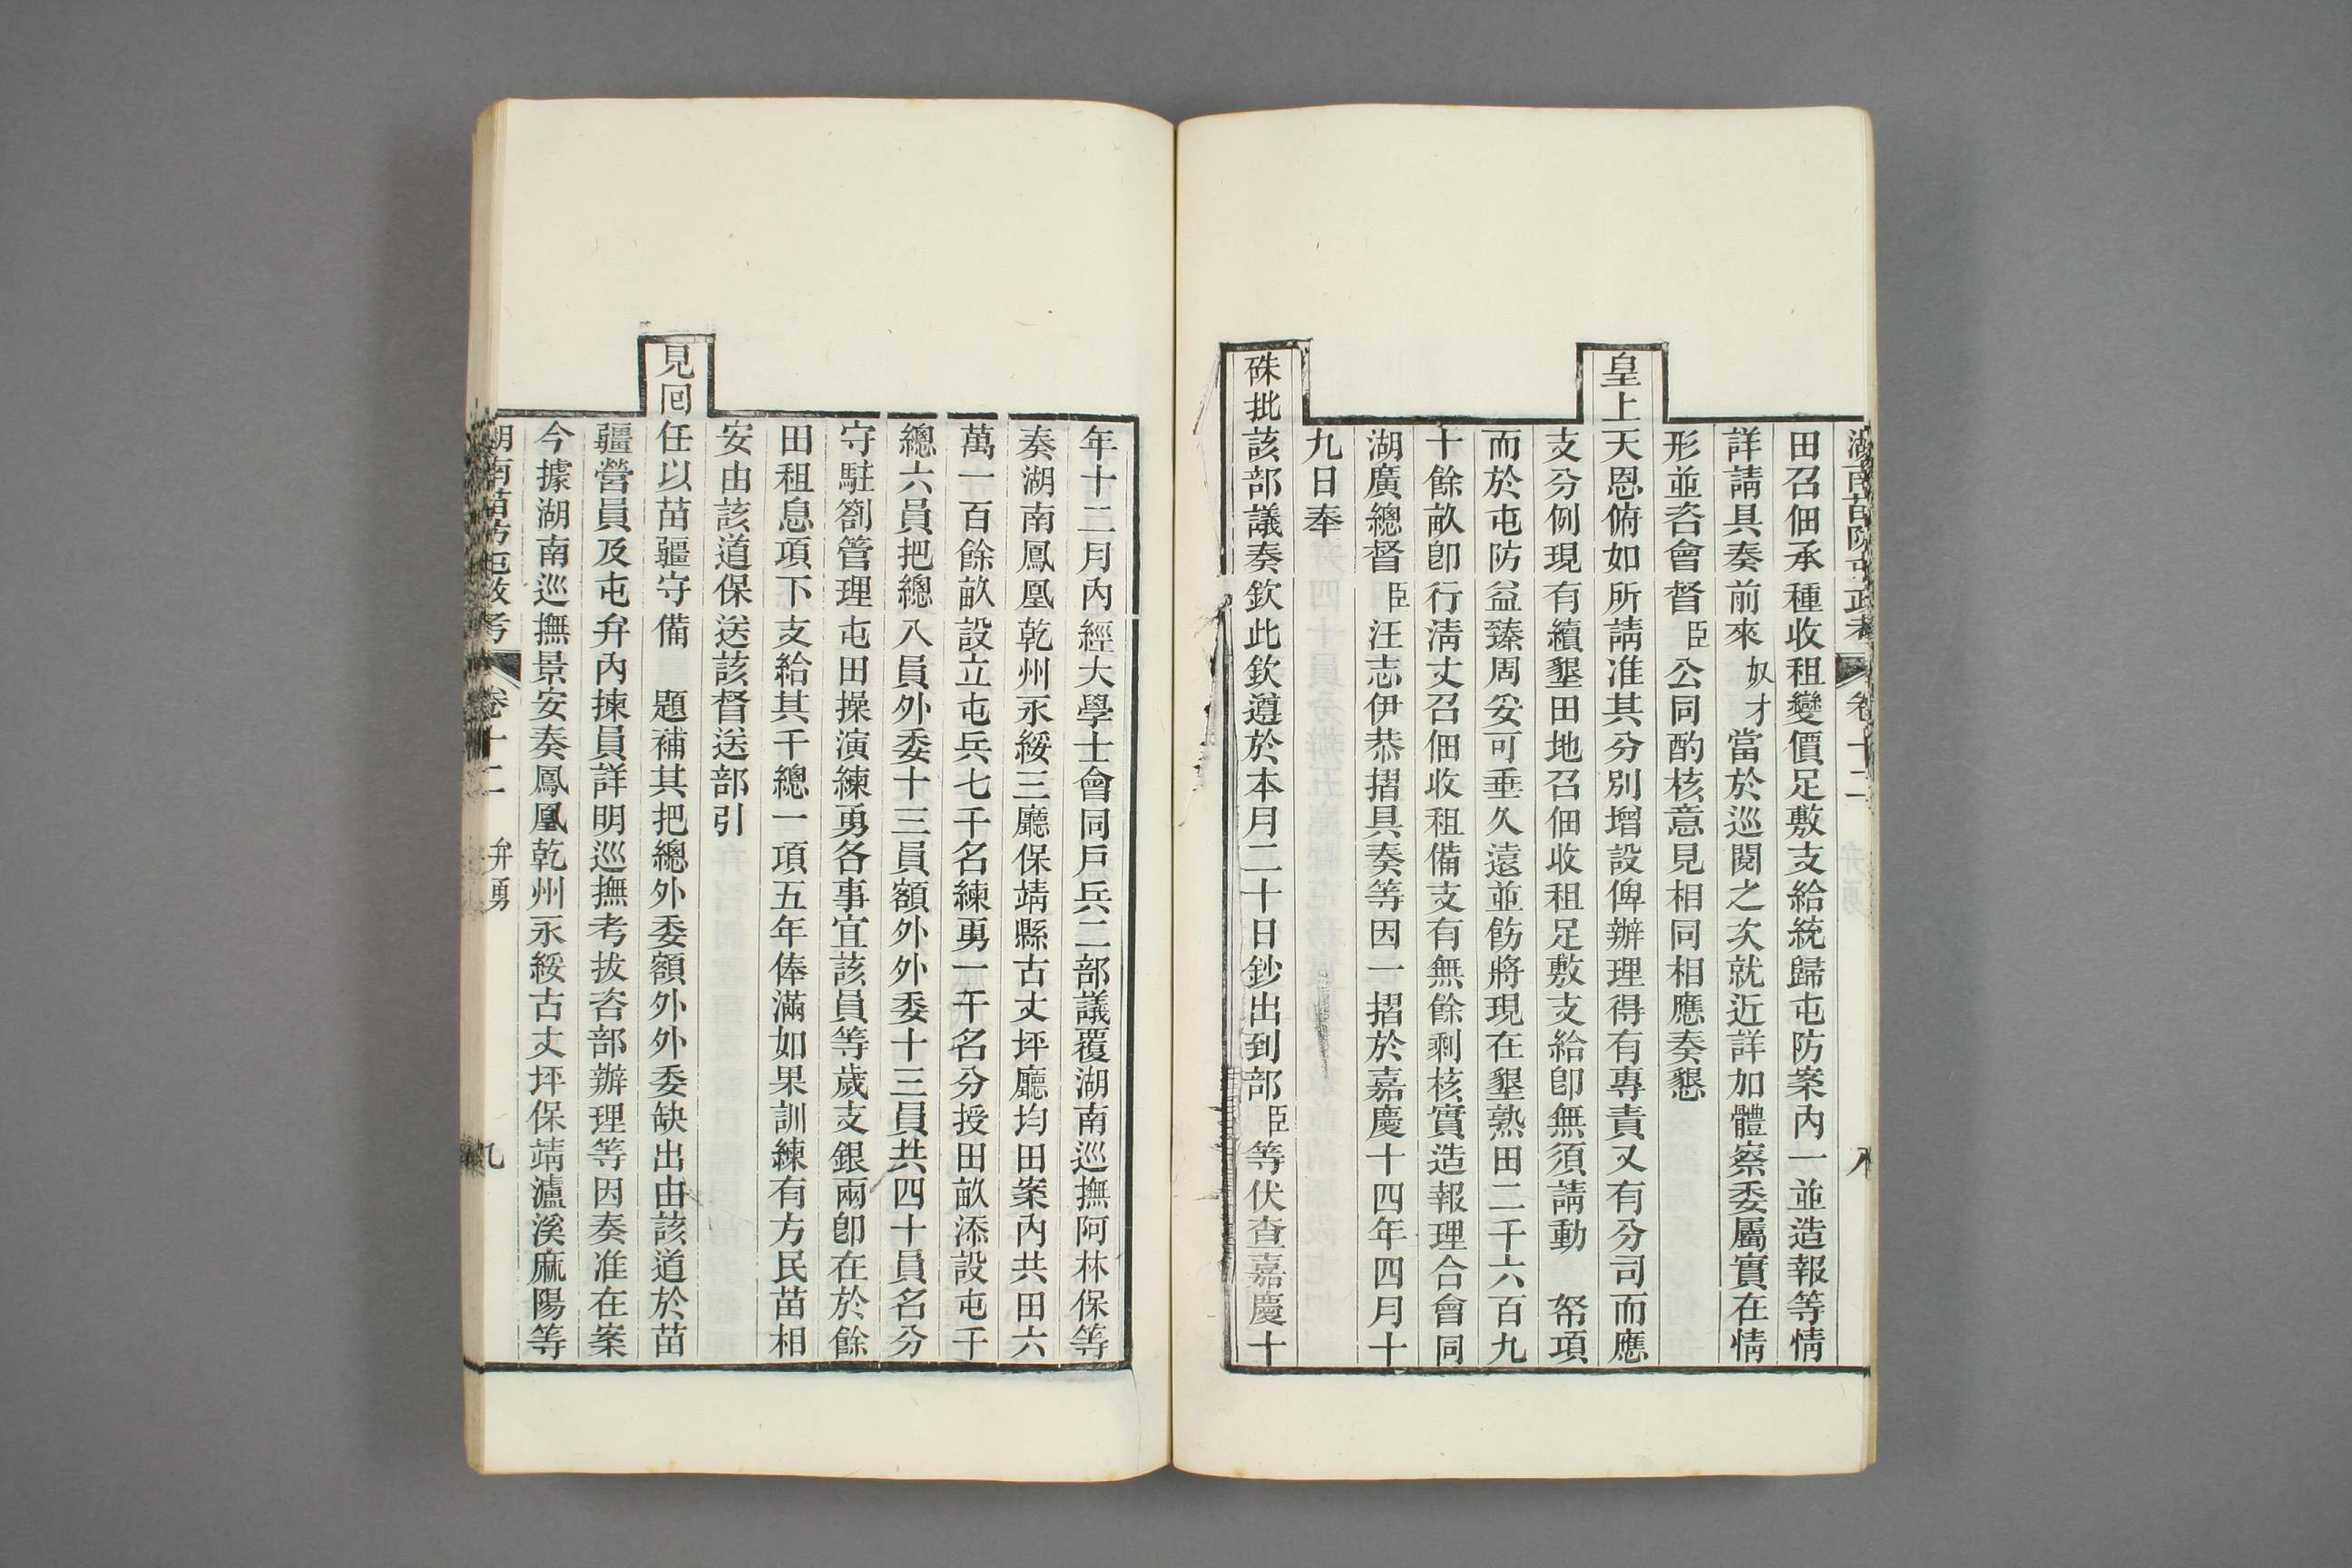 湖南苗防屯政考 卷十二 八
田召佃承種收租變價足敷支給統歸屯防案內一並造報等情
詳請具奏前來奴才當於巡閱之次就近詳加體察委屬實在情
形並咨會督臣公同酌核意見相同相應奏懇
皇上天恩俯如所請准其分別增設俾辦理得有專責又有分司而應
支分例現有續墾田地召佃收租足敷支給卽無須請動 帑項
而於屯防益臻周妥可垂久遠並飭將現在墾熟田二千六百九
十餘畝卽行淸丈召佃收租備支有無餘剩核實造報理合會同
湖廣總督臣汪志伊恭摺具奏等因一摺於嘉慶十四年四月十
九日奉
硃批該部議奏欽此欽遵於本月二十日鈔出到部臣等伏查嘉慶十
年十二月內經大學士會同戶兵二部議覆湖南巡撫阿林保等
奏湖南鳳凰乾州永綏三廳保靖縣古丈坪廳均田案內共田六
萬一百餘畝設立屯兵七千名練勇一千名分授田畝添設屯千
總六員把總八員外委十三員額外外委十三員共四十員名分
守駐劄管理屯田操演練勇各事宜該員等歲支銀兩卽在於餘
田租息項下支給其千總一項五年俸滿如果訓練有方民苗相
安由該道保送該督送部引
見回任以苗疆守備 題補其把總外委額外外委缺出由該道於苗
疆營員及屯弁內揀員詳明巡撫考拔咨部辦理等因奏准在案
今據湖南巡撫景安奏鳳凰乾州永綏古丈坪保靖瀘溪麻陽等
湖南苗防屯政考 卷十二 弁勇 九